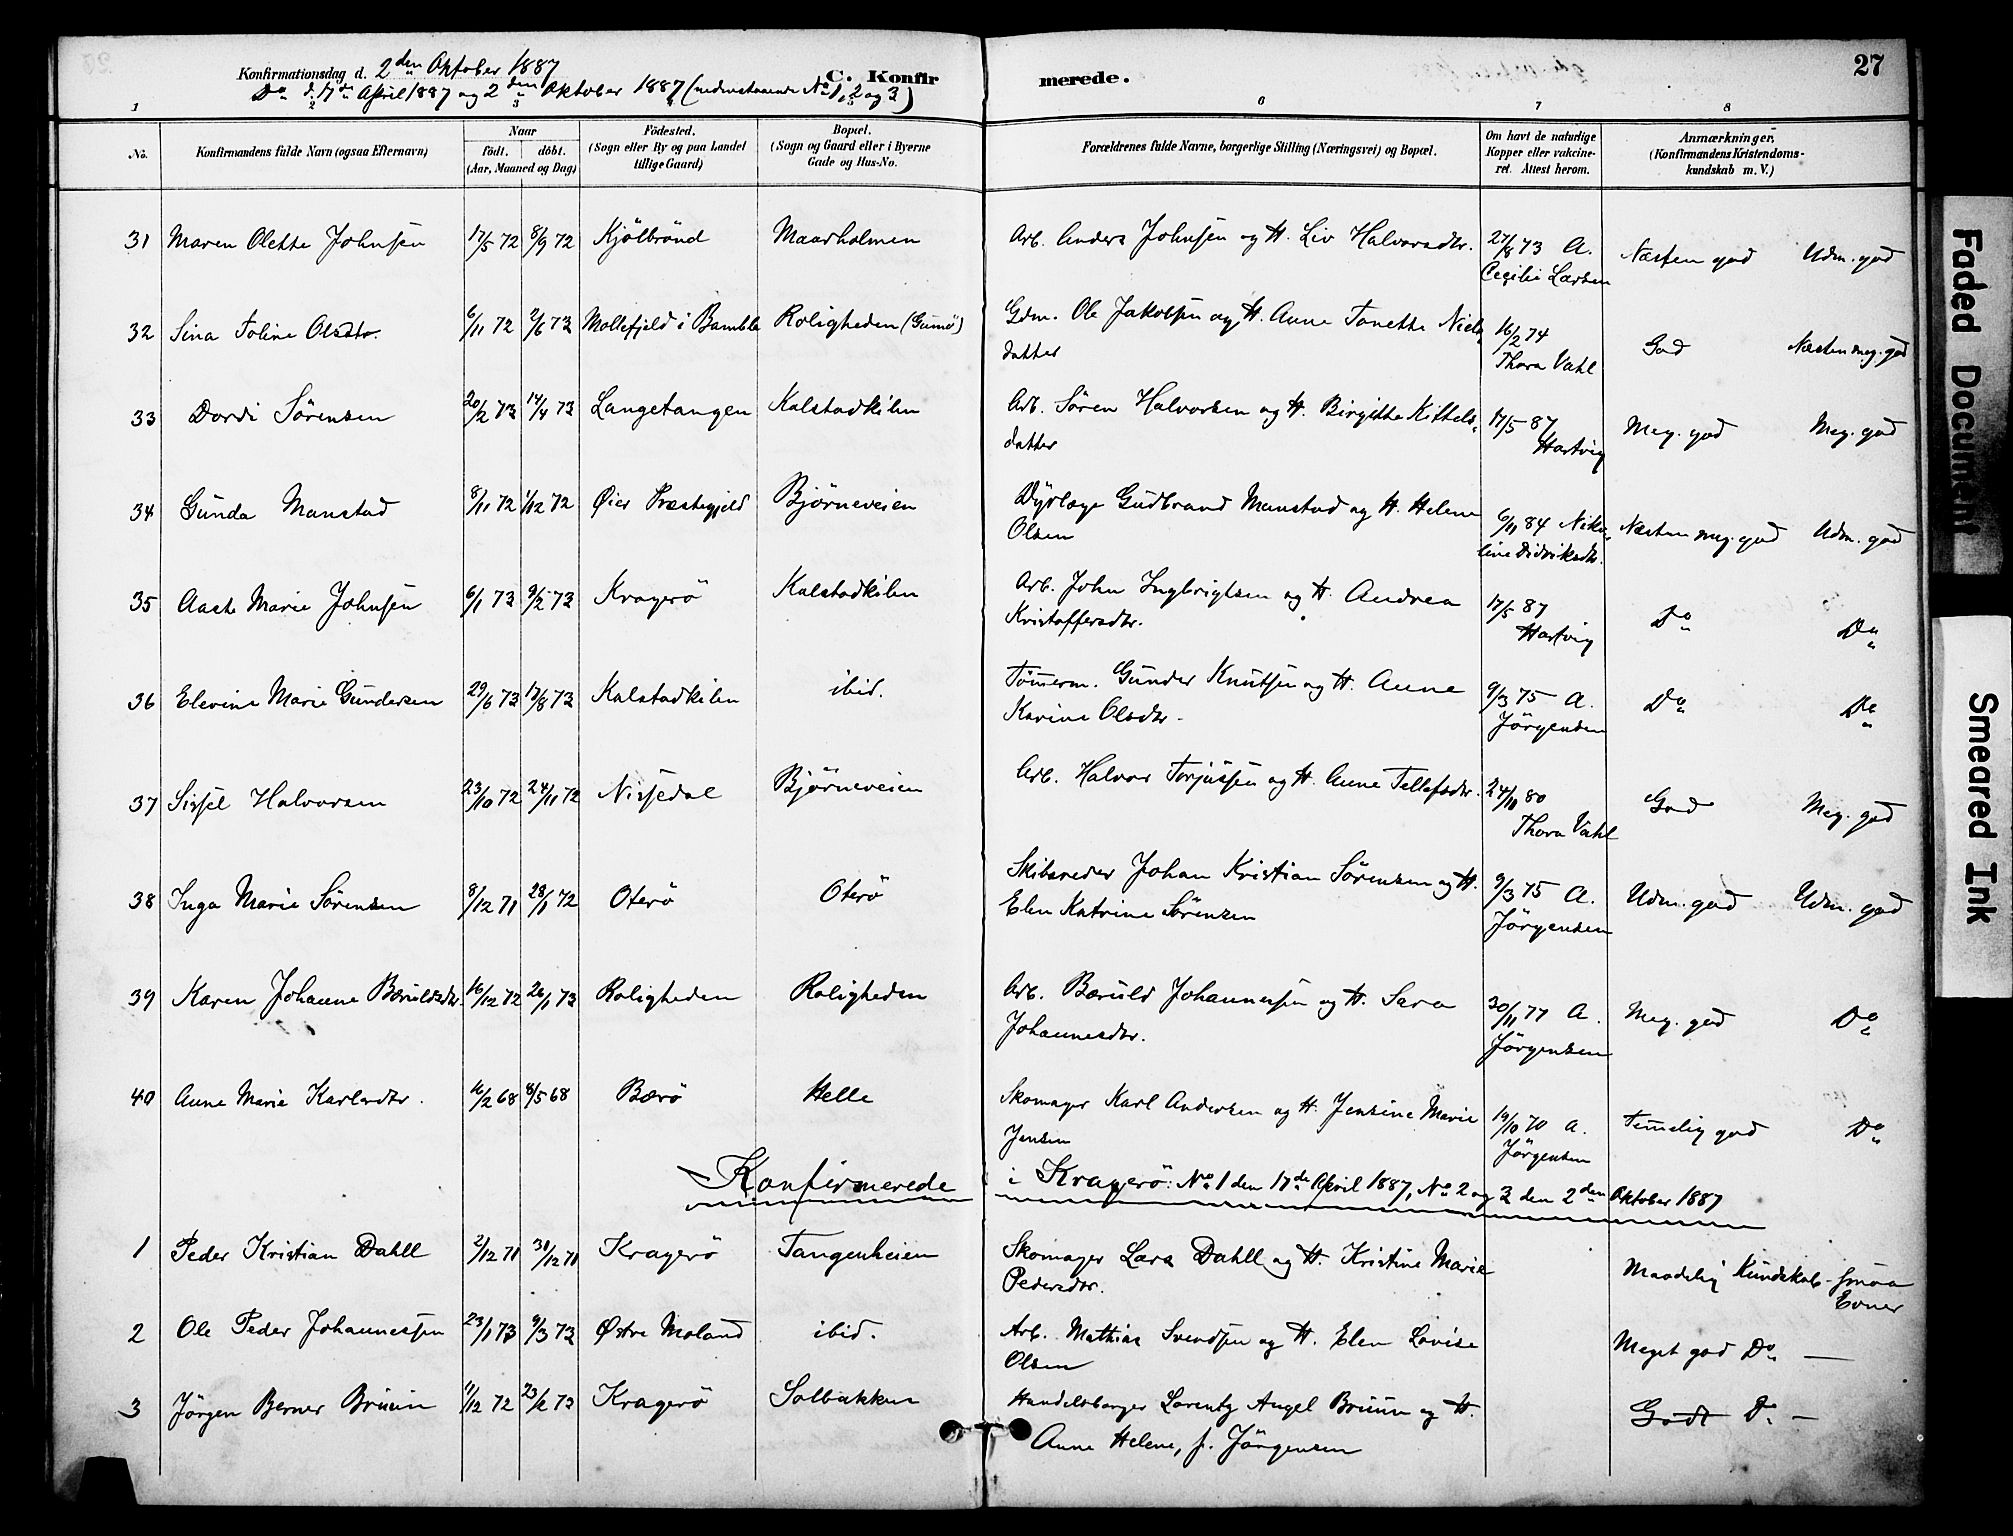 Konfirmationsdag d. 2den Oktober 1887 C. Konfirmerede. 27
Do d. 17de April 1887 og 2den Oktober 1887 (nedenstaaende No 1, 2 og 3)
1 2 3 4 6 7 8
No. Konfirmandens fulde Navn (ogsaa Efternavn) Naar födt. döbt. (Aar, Maaned og Dag) Födested. (Sogn eller By og paa Landet tillige Gaard) Bopæl. (Sogn og Gaard eller i Byerne Gade og Hus-No. Forældrenes fulde Navne, borgerlige Stilling (Næringsvei) og Bopæl. Om havt de naturlige Kopper eller vakcineret. Attest herom. Anmærkninger. (Konfirmandens Kristendomskundskab m. V.)
31 Maren Olette Johnsen 17/5 72 8/9 72 Kjölbrönd Maarholmen Arb. Anders Johnsen og H. Liv Halvorsdtr. 27/8 73 A. Cecilie Larsen Næsten god Udm. god
32 Sina Toline Olsdtr. 6/11 72 2/6 73 Mollefjeld i Bamble Roligheden (Gumö) Gdm. Ole Jakobsen og H. Anne Tonette Niels-
datter 16/2 74 Thora Vahl God Næsten meg. god
33 Dordi Sörensen 20/2 73 14/4 73 Langetangen Kalstadkilen Arb. Sören Halvorsen og H. Birgitte Kittels-
datter 17/5 87 Hartvig Meg. god Meg. god
34 Gunda Manstad 8/11 72 1/12 72 Øier Præstegjeld Björneveien Dyrlæge Gudbrand Manstad og H. Helene
Olsen 6/11 84 Nikoline Didriksdtr. Næsten meg. god Udm. god
35 Aaste Marie Johnsen 6/1 73 9/2 73 Kragerö Kalstadkilen Arb. John Ingbrigtsen og H. Andrea
Kristoffersdtr. 17/5 87 Hartvig Do Do
36 Elevine Marie Gundersen 29/6 73 17/8 73 Kalstadkilen ibid. Tömerm. Gunder Knutsen og H. Anne
Karine Olsdtr. 9/3 75 A. Jörgensen Do Do
37 Sissel Halvorsen 23/10 72 24/11 72 Nissedal Björneveien Arb. Halvor Torjussen og H. Anne Tellefsdtr. 24/11 80 Thora Vahl God Meg. god
38 Inga Marie Sörensen 8/12 71 28/1 72 Oterö Oterö Skibsreder Johan Kristian Sörensen og H.
Elen Katrine Sörensen 9/3 75 A. Jörgensen Udm. god Udm. god
39 Karen Johanne Bæruldsdtr. 16/12 72 26/1 73 Roligheden Roligheden Arb. Bæruld Johannessen og H. Sara
Johannesdtr. 30/11 77 A. Jörgensen Meg. god Do
40 Anne Marie Karlsdtr. 16/2 68 8/5 68 Bærö Helle Skomager Karl Andersen og H. Jensine Marie
Jensen 19/10 70 A. Jörgensen Temelig god Do
Konfirmerede i Kragerö: No 1 den 17de April 1887, No 2 og 3 den 2den Oktober 1887
1 Peder Kristian Dahll 2/12 71 31/12 71 Kragerö Tangenheien Skomager Lars Dahll og H. Kristine Marie
Pedersdtr. Maadelig Kundskab - smaa Evner
2 Ole Peder Johannessen 23/1 73 9/3 73 Østre Moland ibid. Arb. Mathias Svendsen og H. Elen Lovise
Olsen Meget god Do —
3 Jörgen Berner Bruun 11/12 72 23/2 73 Kragerö Solbakken Handelsborger Lorentz Angel Bruun og H.
Anne Helene, f. Jörgensen Godt Do —
Faded Document
Smeared Ink